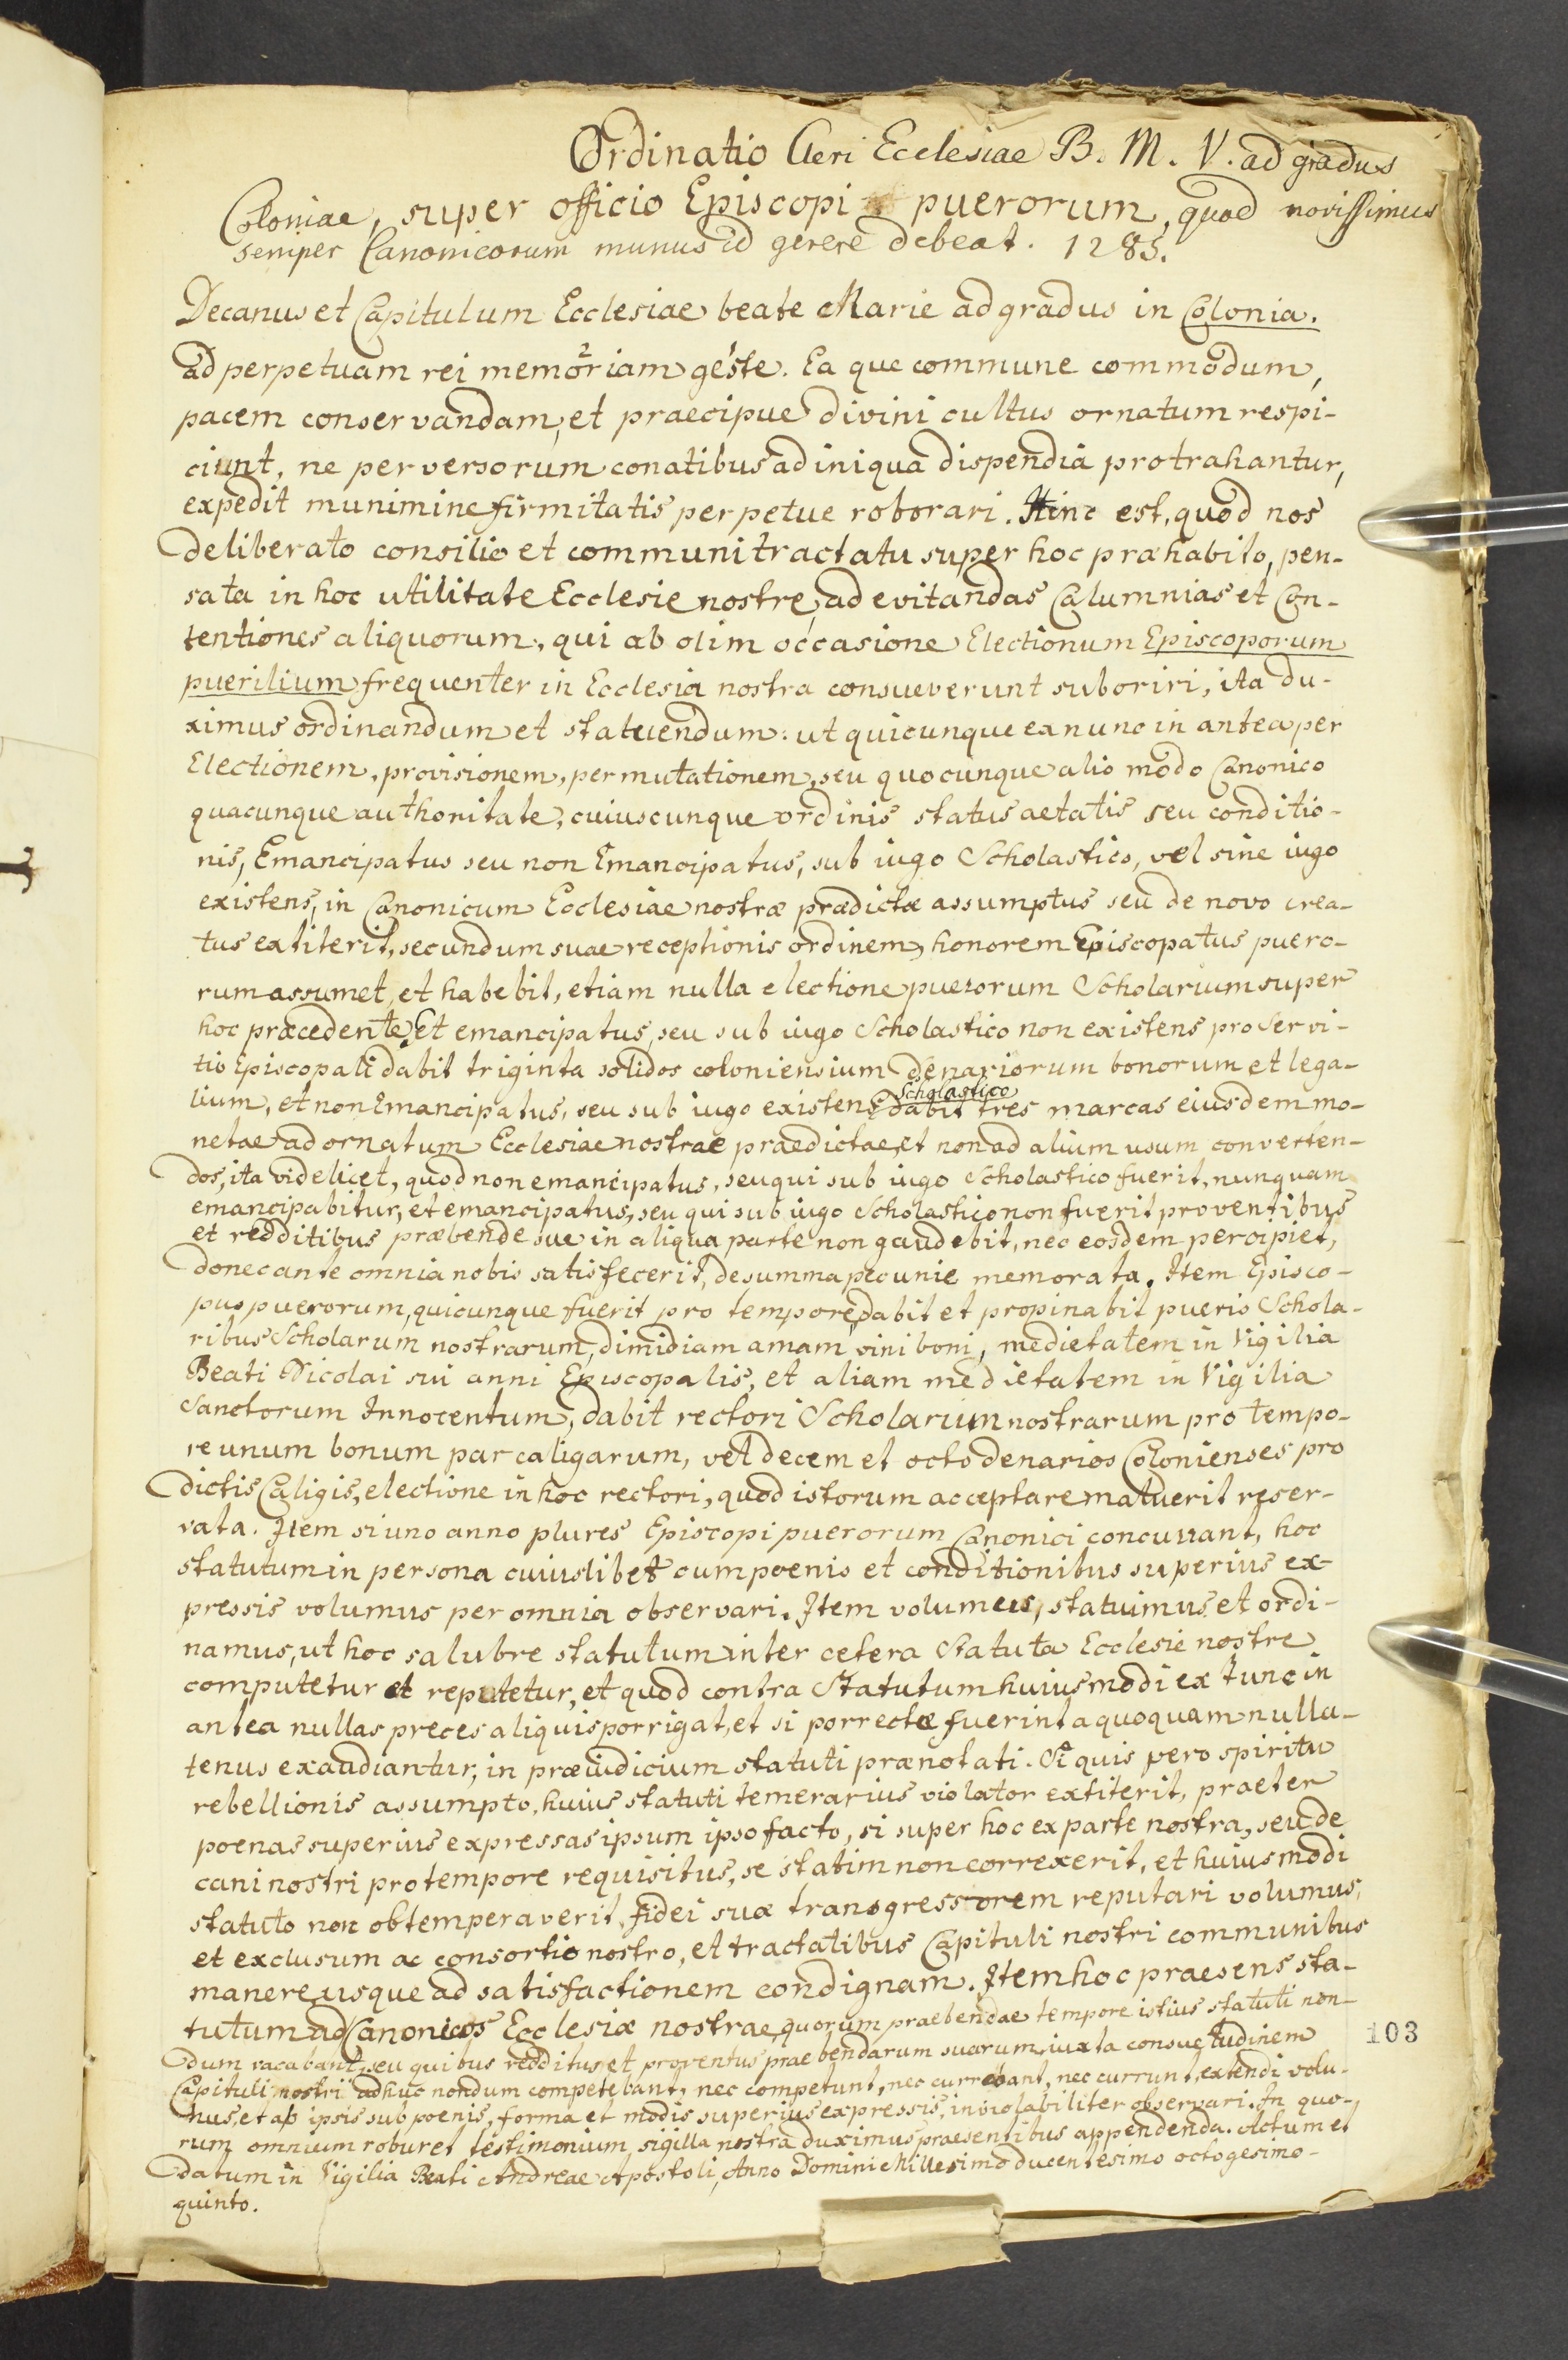 Ordinatio Cleri Ecclesiae B. M. V. ad gradus
Coloniae, super officio Episcopi puerorum, quod novissimus
semper Canonicorum munus id gerere debeat. 1285.
Decanus et Capitulum Ecclesiae beate Marie ad gradus in Colonia.
ad perpetuam rei memoriam geste. Ea que commune commodum,
pacem conservandam, et praecipue divini cultus ornatum respi-
ciunt, ne perversorum conatibus ad iniqua dispendia protrahantur,
expedit munimine firmitatis perpetue roborari. Hinc est, quod nos
deliberato consilio et communi tractatu super hoc præhabito, pen-
sata in hoc utilitate Ecclesie nostre, ad evitandas Calumnias et Con-
tentiones aliquorum, qui ab olim occasione Electionum Episcoporum
puerilium frequenter in Ecclesia nostra consueverunt suboriri, ita du-
ximus ordinandum et statuendum: ut quicunque ex nunc in antea per
Electionem, provisionem, permutationem, seu quocunque alio modo Canonico
quacunque authoritate, cuiuscunque ordinis status aetatis seu conditio-
nis, Emancipatus seu non Emancipatus, sub iugo Scholastico, vel sine iugo
existens, in Canonicum Ecclesiae nostræ prædictæ assumptus seu de novo crea-
tus extiterit, secundum suae receptionis ordinem, honorem Episcopatus puero-
rum assumet, et habebit, etiam nulla electione puerorum Scholarium super
hoc præcedente. Et emancipatus, seu sub iugo Scholastico non existens pro servi-
tio Episcopali dabit triginta solidos coloniensium denariorum bonorum et lega-
lium, et non Emancipatus, seu sub iugo Scholastico existens dabit tres marcas eiusdem mo-
netae ad ornatum Ecclesiae nostrae praedictae, et non ad alium usum converten-
dos, ita videlicet, quod non emancipatus, seu qui sub iugo Scholastico fuerit, nunquam
emancipabitur, et emancipatus, seu qui sub iugo Scholastico non fuerit proventibus
et redditibus præbende sue in aliqua parte non gaudebit, nec eosdem percipiet,
donec ante omnia nobis satisfecerit, de summa pecunie memorata. Item Episco-
pus puerorum, quicunque fuerit pro tempore, dabit et propinabit pueris Schola-
ribus Scholarum nostrarum, dimidiam amam vini boni, medietatem in Vigilia
Beati Nicolai sui anni Episcopalis, et aliam medietatem in Vigilia
Sanctorum Innocentum, dabit rectori Scholarium nostrarum pro tempo-
re unum bonum par caligarum, vel decem et octo denarios Colonienses pro
dictis Caligis, electione in hoc rectori, quod istorum acceptare maluerit reser-
vata. Item si uno anno plures Episcopi puerorum Canonici concurrant, hoc
statutum in persona cuiuslibet cum poenis et conditionibus superius ex-
pressis volumus per omnia observari. Item volumus, statuimus et ordi-
namus, ut hoc salubre statutum inter cetera Statuta Ecclesie nostre
computetur et reputetur, et quod contra Statutum huiusmodi ex tunc in
antea nullas preces aliquis porrigat, et si porrectæ fuerint a quoquam nulla-
tenus exaudiantur, in præiudicium statuti prænotati. Si quis vero spiritu
rebellionis assumpto, huius statuti temerarius violator extiterit, praeter
poenas superius expressas ipsum ipso facto, si super hoc ex parte nostra, seu de
cani nostri pro tempore requisitus, se statim non correxerit, et huiusmodi
statuto non obtemperaverit, fidei suæ transgressorem reputari volumus,
et exclusum ac consortio nostro, et tractatibus Capituli nostri communibus
manere usque ad satisfactionem condignam. Item hoc praesens sta-
tutum ad Canonicos Ecclesiæ nostrae, quorum praebendae tempore istius statuti non
dum vacabant, seu quibus redditus et proventus praebendarum suarum, iuxta consuetudinem
Capituli nostri adhuc nondum competebant, nec competunt, nec currebant, nec currunt, extendi volu-
mus, et ab ipsis sub poenis, forma et modis superius expressis, inviolabiliter observari. In quo-
rum omnium robur et testimonium, sigilla nostra duximus praesentibus appendenda. Actum et
datum in Vigilia Beati Andreae Apostoli, Anno Domini Millesimo ducentesimo octogesimo-
quinto.
103